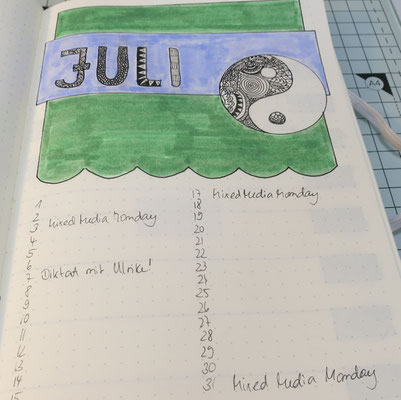 JULI
1
2
3 Mixed Media Monday
4
5
6
7 Diktat mit Ulrike!
8
9
10
11
12
13
14
15
17 Mixed Media Monday
18
19
20
21
22
23
24
25
26
27
28
29
30
31 Mixed Media Monday
A4